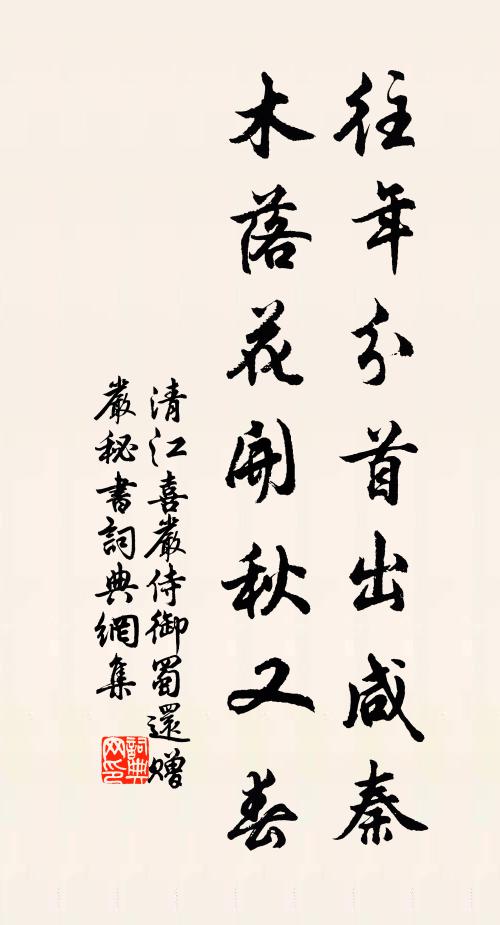 往年分首出咸秦
木落花開秋又春
清江喜嚴侍御蜀還贈
嚴秘書詞典網集
詞典
网印